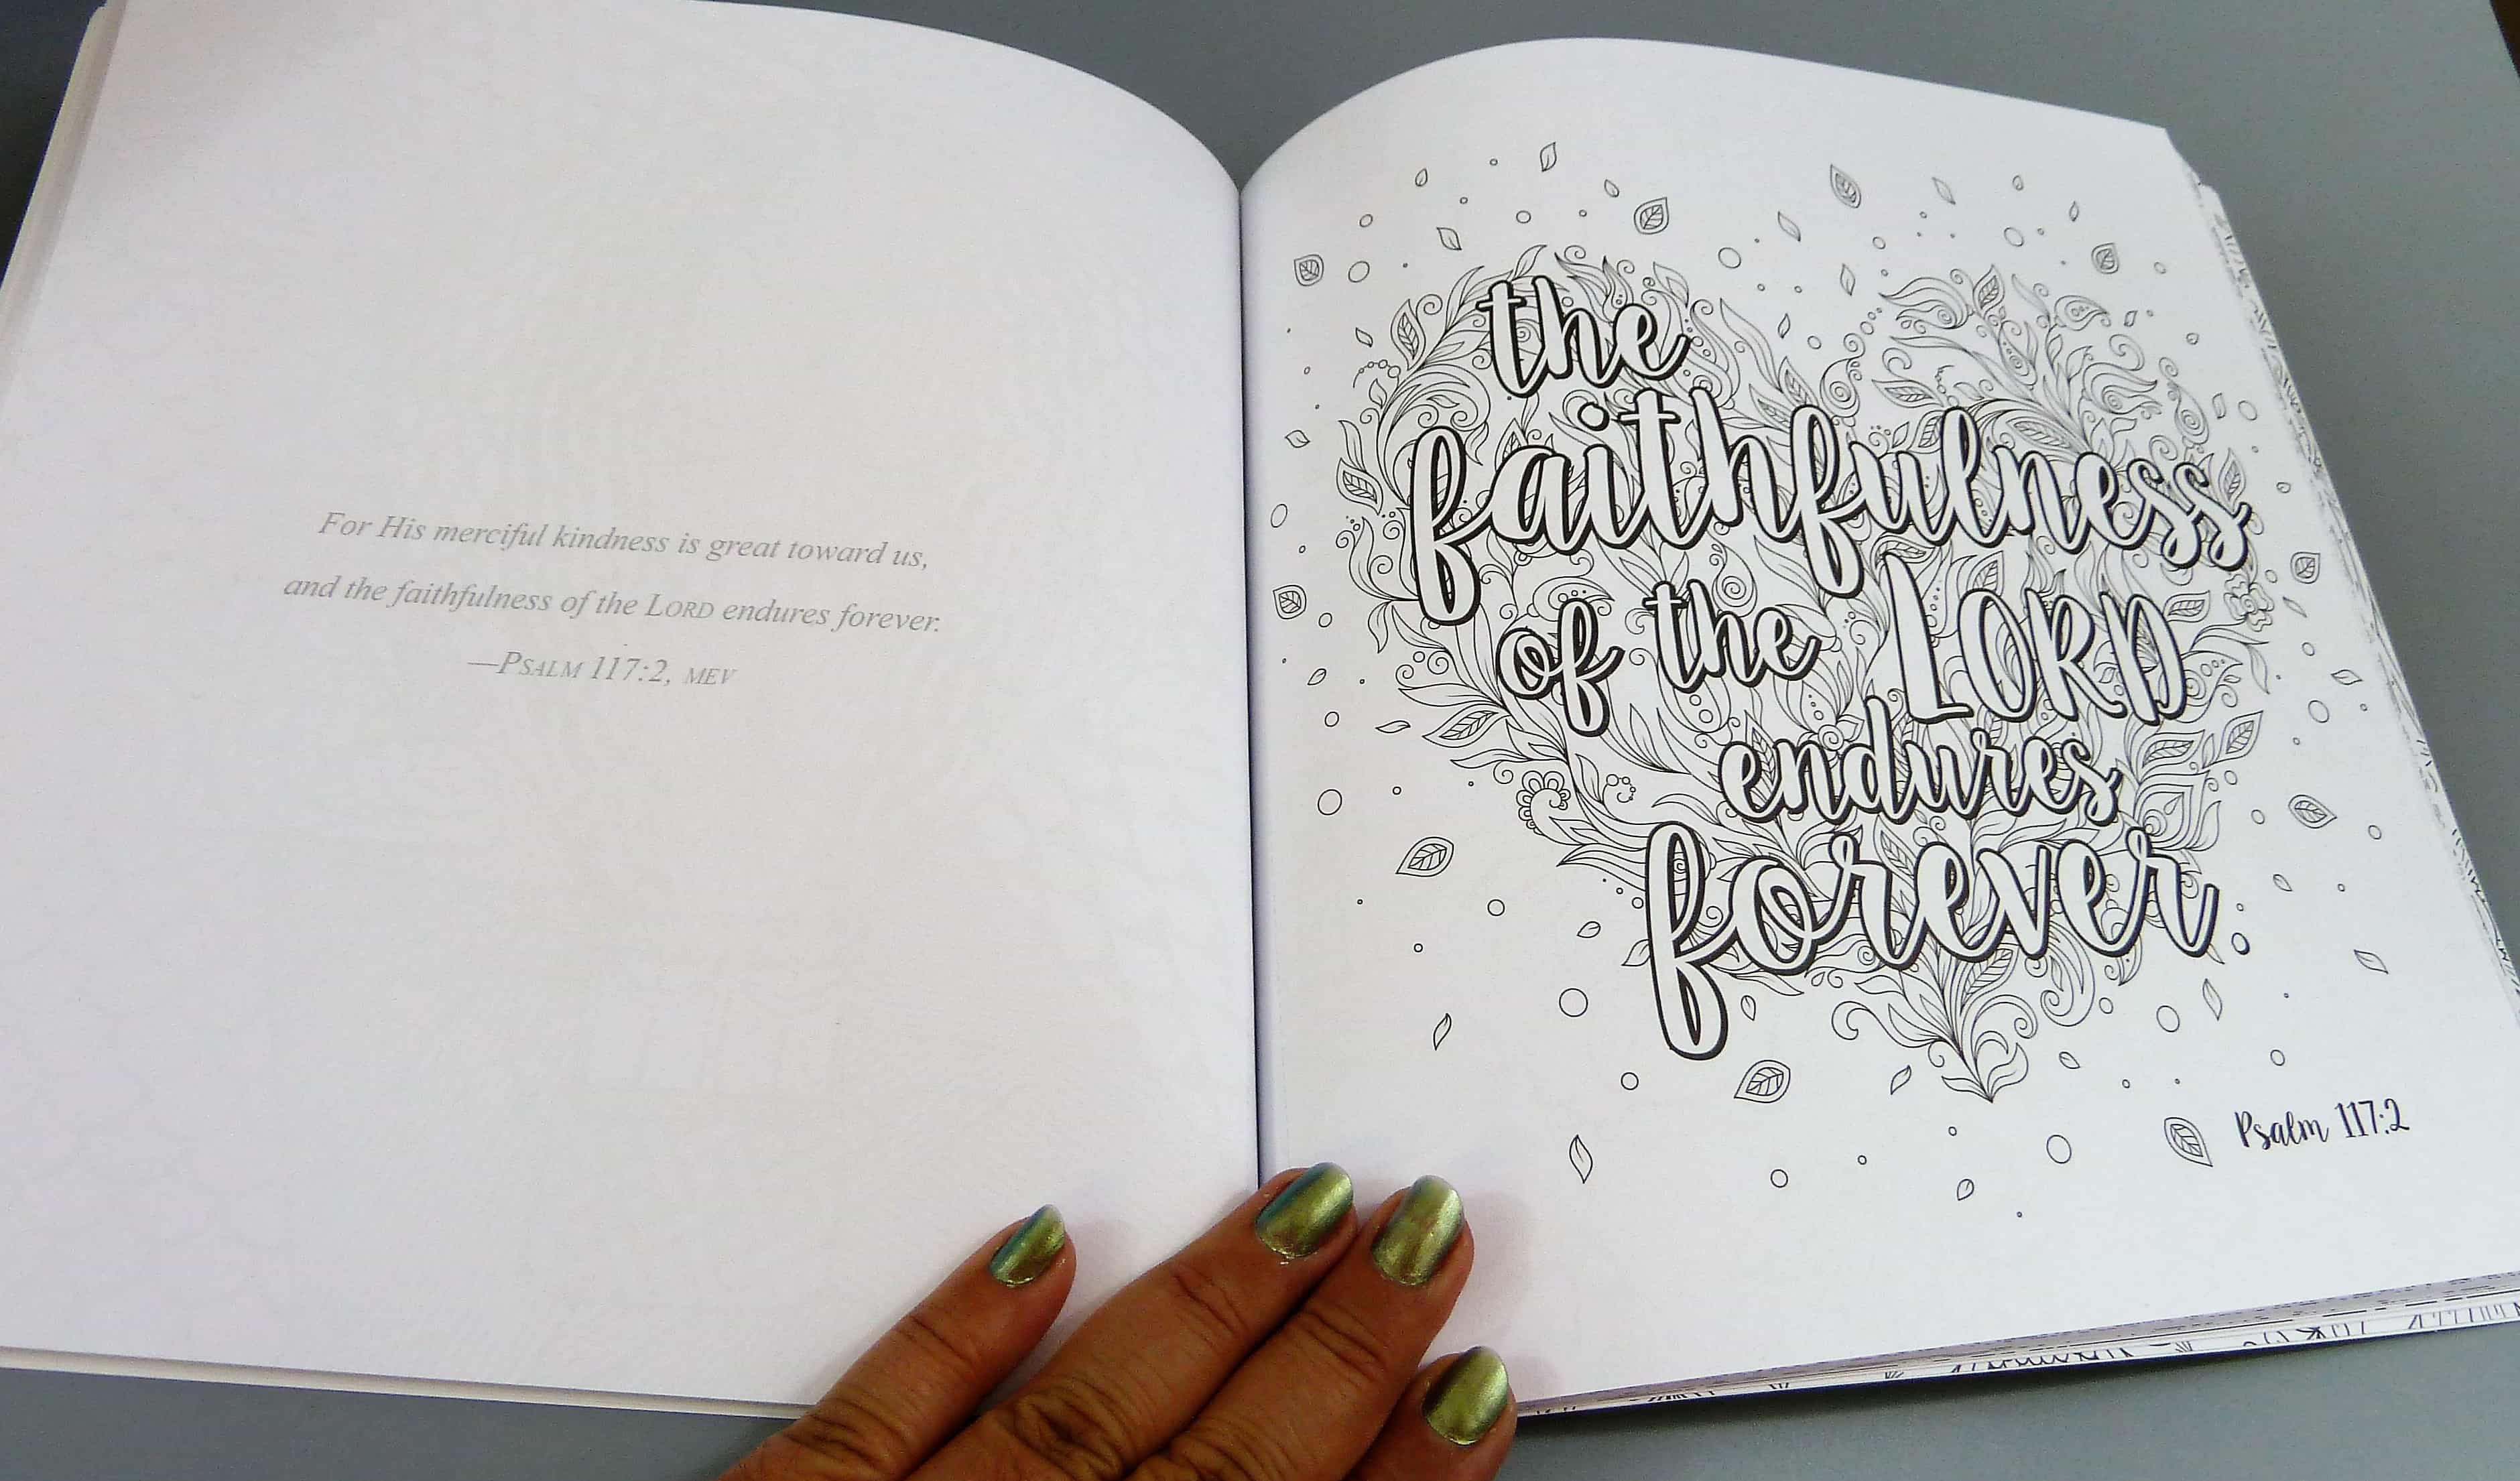 For His merciful kindness is great toward us,
and the faithfulness of the LORD endures forever.
—PSALM 117:2, MEV
the
faithfulness
of the LORD
endures
forever
Psalm 117:2